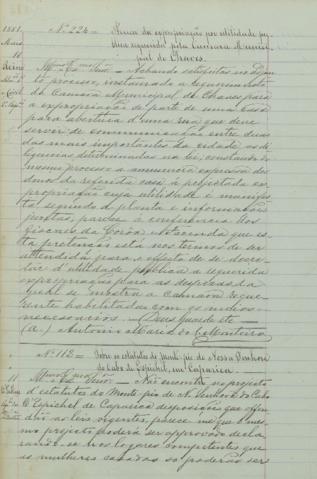 1881 N.º 224 = Àcerca da expropriação por utilidade pu-
Maio blica requerida pela Camara Munici-
10 pal de Chaves.
Reino Ill.mo e Ex.mo Snr. - Achando satisfeitas no
processo, instaurado a requerimento
da Camara Municipal de Chaves, para
a expropriação de parte de uma casa
para abertura d'uma rua que deve
servir de communicação entre duas
das mais importantes da cidade as di-
ligencias determinadas na lei, constando do
mesmo processo a annuencia expressa do
dono da referida casa á projectada ex-
propriação cuja utilidade é manifes-
ta segundo a planta e informações
juntas, parece á conferencia dos
Fiscaes da Corôa e Fazenda que es-
ta pretenção está nos termos de ser
attendida para o effeito de se decre-
tar d'utilidade publica a requerida
expropriação para as despezas da
qual se mostra a Camara reque-
rente habilitada com os meios
necessarios. - Deus Guarde etc -
(a.) Antonio Maria do C. Monteiro
N.º 112 = Sobre os estatutos do Monte-pio de Nossa Senhora
do Cabo do Espichel, em Caparica
11 Ill.mo e Ex.mo Snr. - Não encontro no projecto
d'estatutos do Monte pio de N. Senhora do Cabo
d'Espichel de Caparica disposições que offen-
dam as leis vigentes, parece-me que o mes-
mo projecto poderá ser approvado decla-
rando-se nos logares competentes que
as mulheres casadas só poderão ser